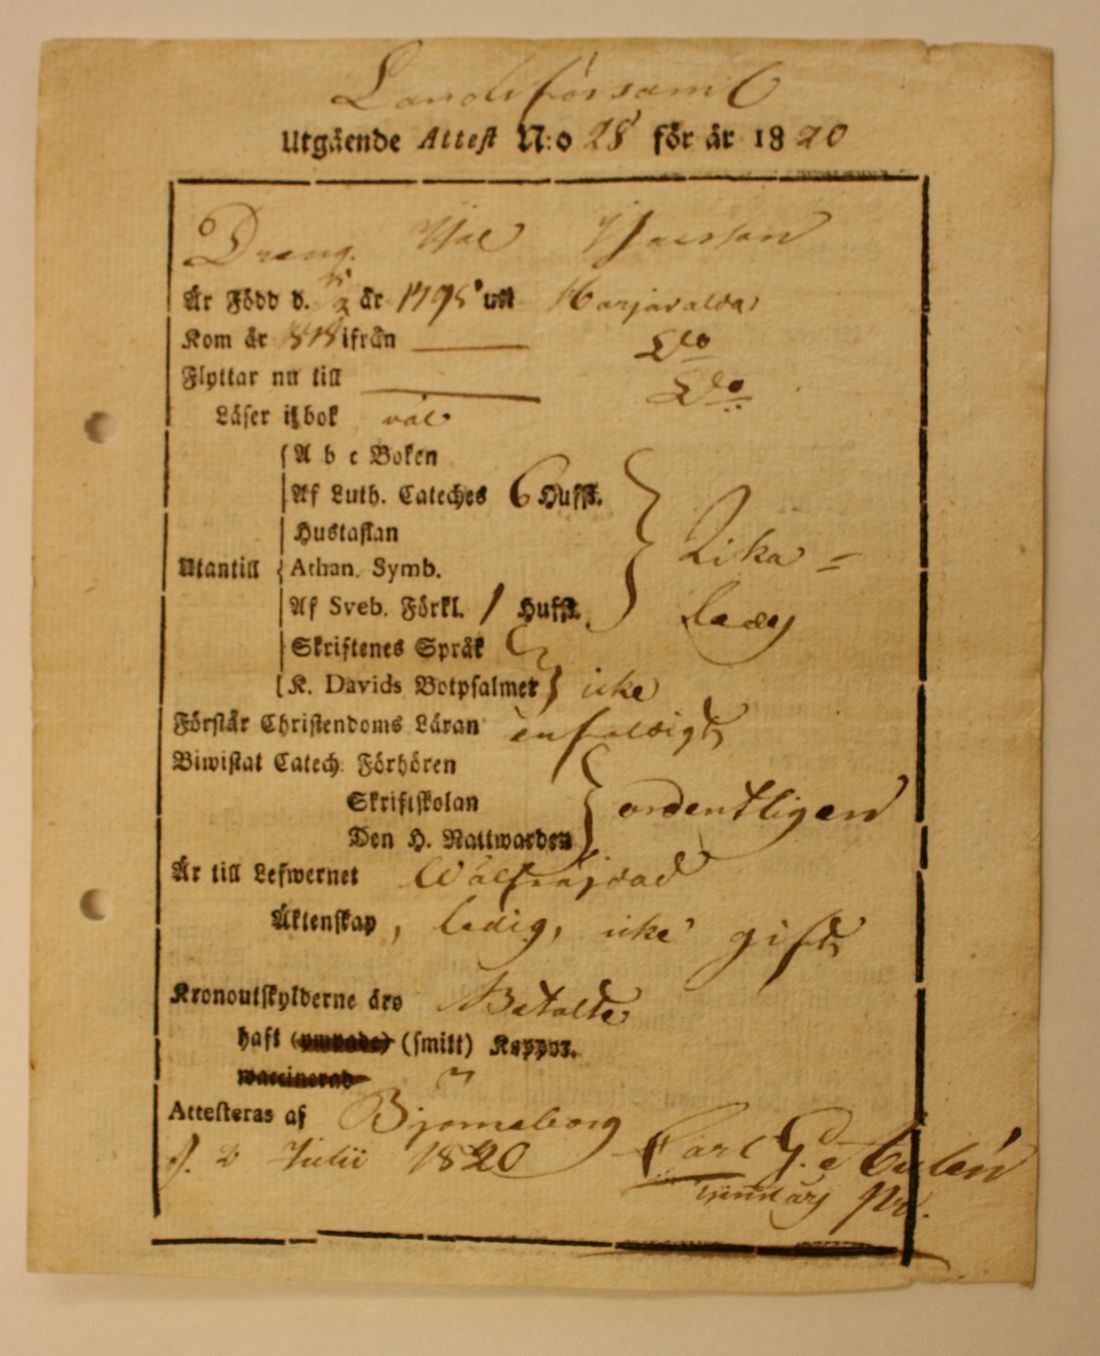 Landsförsaml
Utgående Attest N:o 28 för år 1820
Dreng. Isacsson
Är Född d. år 1795 uti Harjavalda
Kom år ifrån Do
Flyttar nu till Do
Läser i bok väl
A b c Boken
Af Luth. Cateches 6 Hufst.
Hustaflan
Utantill Athan. Symb. Lika =
Af Sveb. Förkl. 1 Hufst. ledes
Skriftenes Språk
K. Davids Botpsalmer icke
Förstår Christendoms Läran enfaldigt
Biwistat Catech. Förhören
Skriftskolan ordentligen
Den H. Nattwarden
Är till Lefwernet Wälfräjdad
Äktenskap, ledig, icke gift
Kronoutskylderne äro Betalte
haft (ympade) (smitt) Koppor.
waccinerad
Attesteras af Bjorneborg
d. 2 Julii 1820 Carl G.